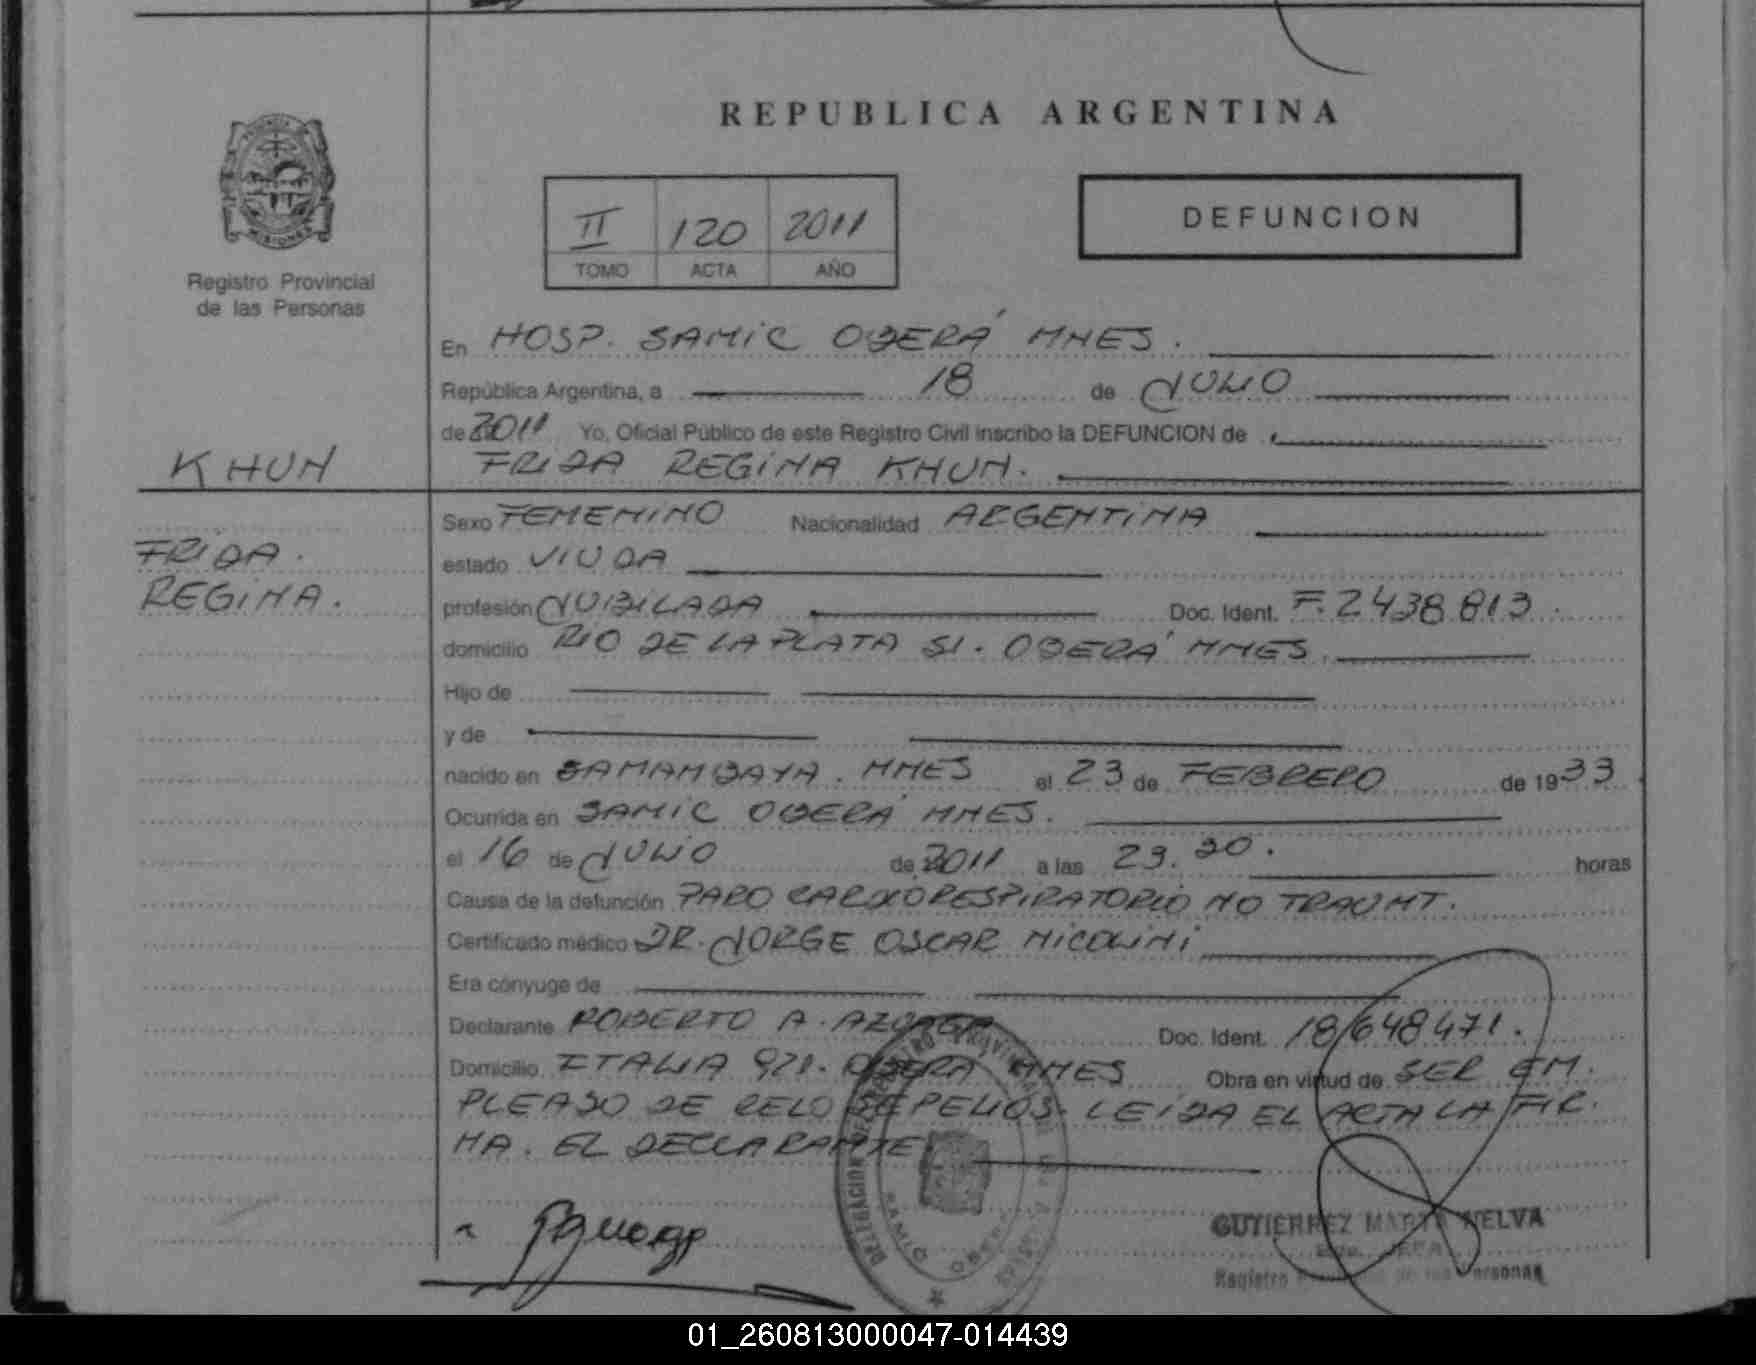 REPUBLICA ARGENTINA
II 120 2011
TOMO ACTA AÑO
DEFUNCION
MISIONES
Registro Provincial
de las Personas
En HOSP. SAMIC OBERÁ MNES.
República Argentina, a 18 de JULIO
de 2011 Yo, Oficial Público de este Registro Civil inscribo la DEFUNCION de
KHUN
FRIDA REGINA KHUN.
Sexo FEMENINO Nacionalidad ARGENTINA
FRIDA.
REGINA.
estado VIUDA
profesión JUBILADA Doc. Ident. F. 2438.813.
domicilio RIO DE LA PLATA S/. OBERÁ MNES.
Hijo de
y de
nacido en SAMAMBAYA. MNES el 23 de FEBRERO de 1933.
Ocurrida en SAMIC OBERÁ MNES.
el 16 de JULIO de 2011 a las 23.20. horas
Causa de la defunción PARO CARDIORESPIRATORIO NO TRAUMT.
Certificado médico DR. JORGE OSCAR NICOLINI
Era cónyuge de
Declarante ROBERTO A. Doc. Ident. 18.648.471.
Domicilio ITALIA 921. OBERA MNES Obra en virtud de SER EM.
PLEADO DE SEPELIOS. LEIDA EL ACTA LA FIR.
MA. EL DECLARANTE
GUTIERREZ MARTA NELVA
JEFA
Registro de las Personas
DELEGACION
SAMIC OBERA
01_260813000047-014439